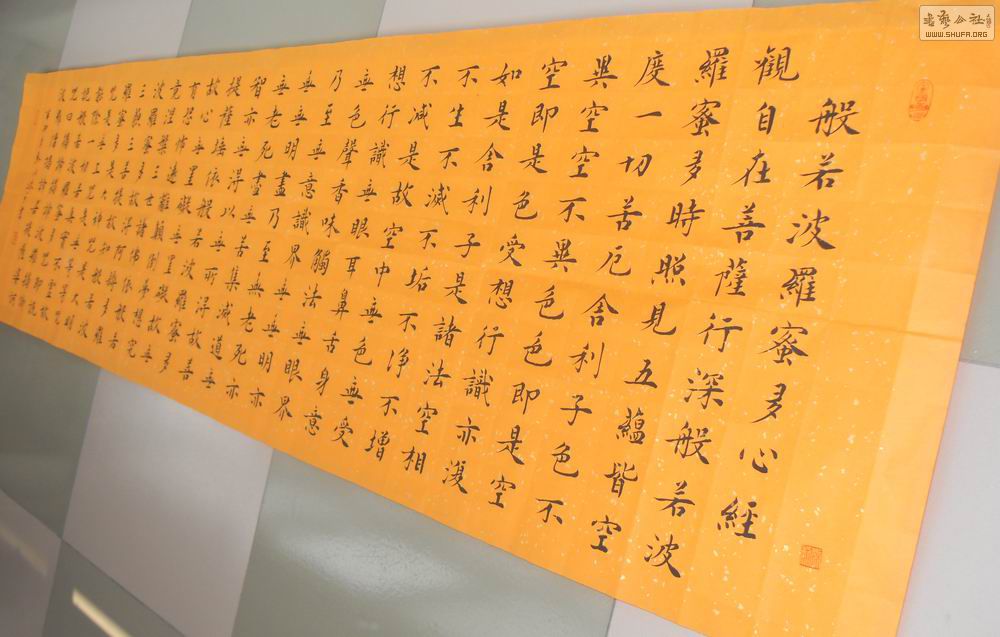 般若波羅蜜多心經
觀自在菩薩行深般若波
羅蜜多時照見五蘊皆空
度一切苦厄舍利子色不
異空空不異色色即是空
空即是色受想行識亦復
如是舍利子是諸法空相
不生不滅不垢不淨不增
不減是故空中無色無受
想行識無眼耳鼻舌身意
無色聲香味觸法無眼界
乃至無意識界無無明亦
無無明盡乃至無老死亦
無老死盡無苦集滅道無
智亦無得以無所得故菩
提薩埵依般若波羅蜜多
故心無罣礙無罣礙故無
有恐怖遠離顛倒夢想究
竟涅槃三世諸佛依般若
波羅蜜多故得阿耨多羅
三藐三菩提故知般若波
羅蜜多是大神咒是大明
咒是無上咒是無等等咒
能除一切苦真實不虛故
說般若波羅蜜多咒即說
書藝公社
WWW.SHUFA.ORG